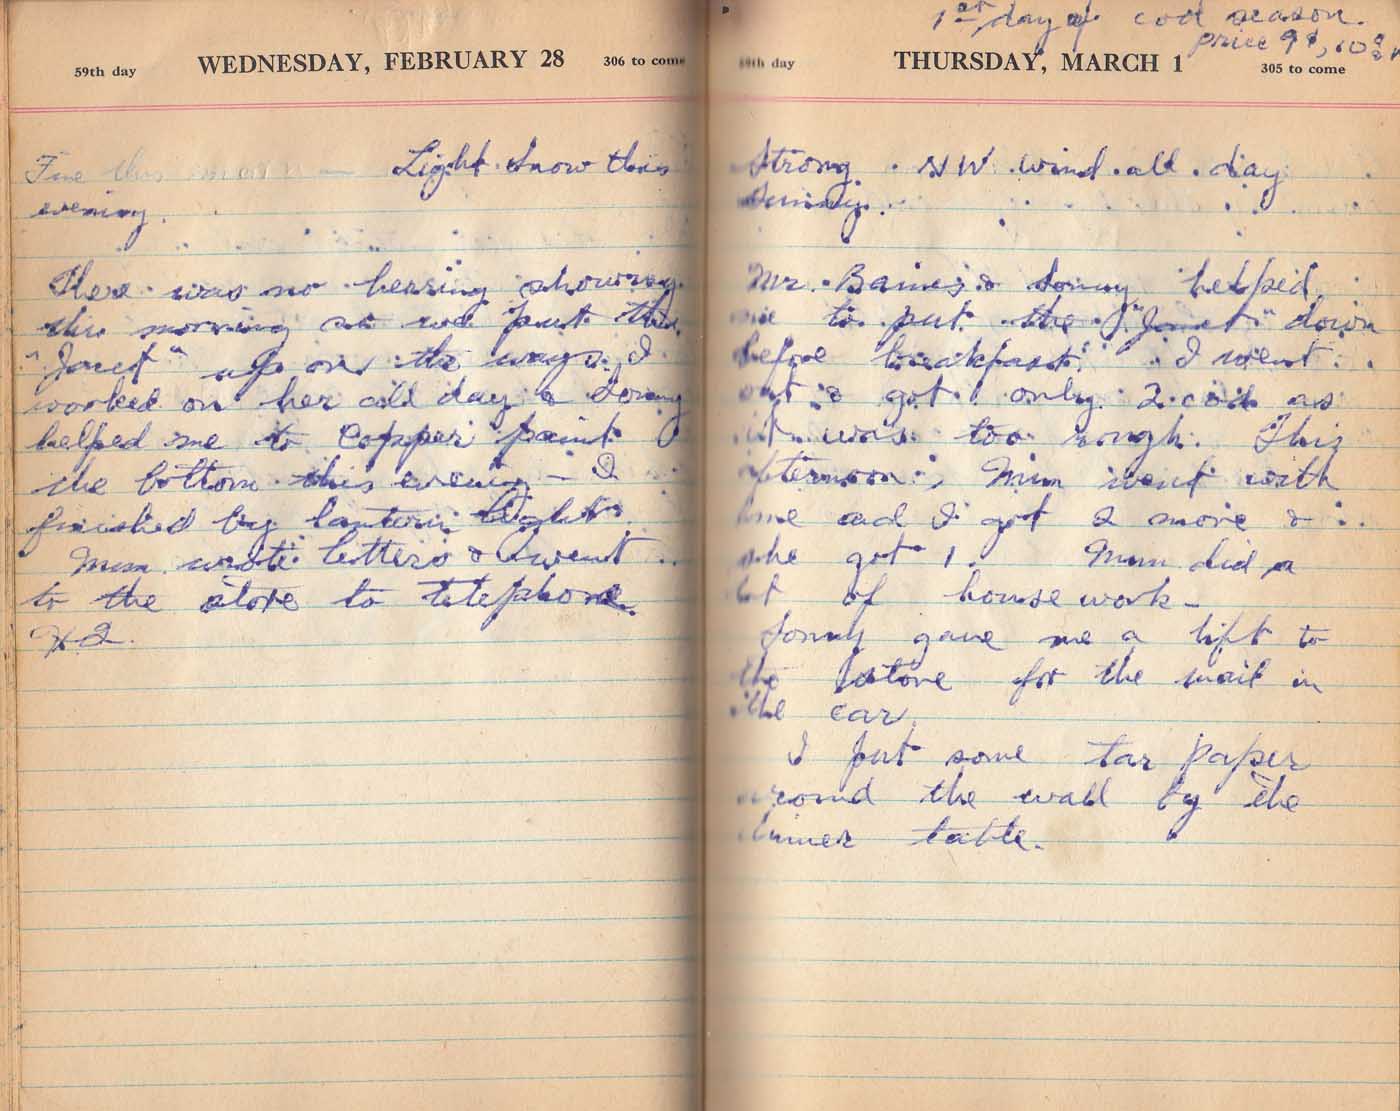 59th day WEDNESDAY, FEBRUARY 28 306 to come
Fine this Light snow this
evening.
There was no herring showing
this morning so we put the
"Janet" up on the ways. I
worked on her all day & Sonny
helped me to copper paint
the bottom this evening - I
finished by lantern light.
Mum wrote letters & went
to the store to telephone.
1st day of cod season.
price 9¢, 10
60th day THURSDAY, MARCH 1 305 to come
Strong NW wind all day
Sunny.
Mr. Baines & Sonny helped
me to put the "Janet" down
before breakfast. I went
out & got only 2 cod as
it was too rough. This
afternoon, Mum went with
me and I got 2 more &
she got 1. Mum did a
lot of house work -
Sonny gave me a lift to
the store for the mail in
the car.
I put some tar paper
around the wall by the
dinner table.